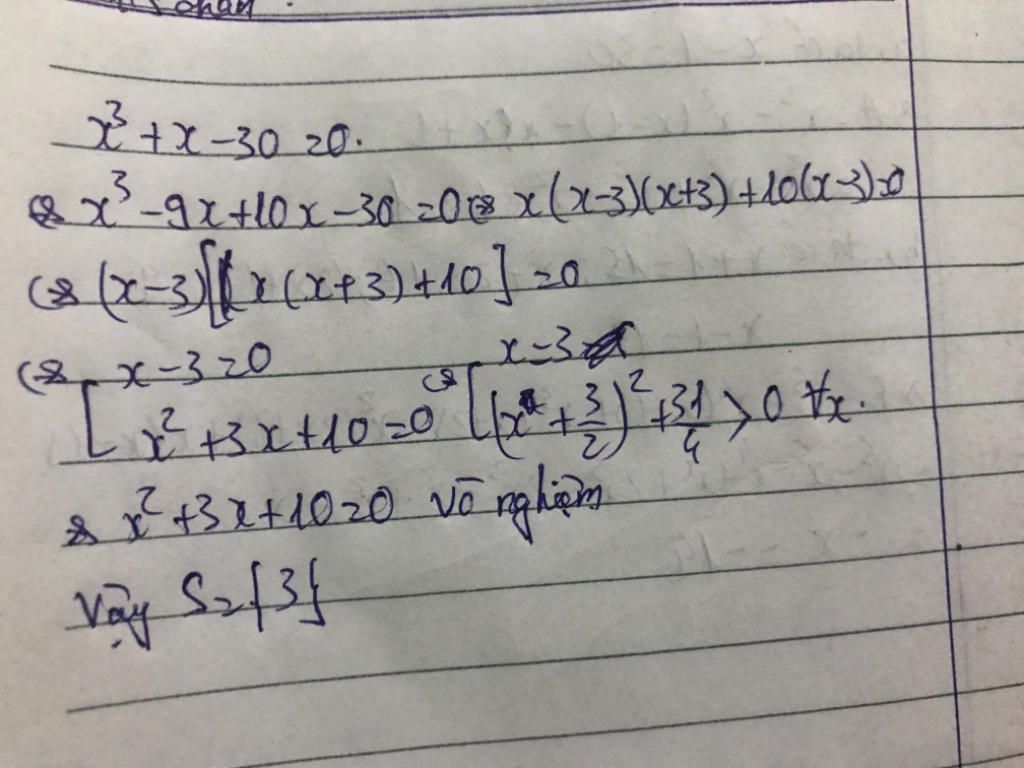 x³ + x - 30 = 0.
⇔ x³ - 9x + 10x - 30 = 0 ⇔ x(x-3)(x+3) + 10(x-3) = 0
⇔ (x-3)[x(x+3) + 10] = 0
⇔ [ x - 3 = 0 ⇔ [ x = 3
x² + 3x + 10 = 0 (x + 3/2)² + 31/4 > 0 ∀x.
⇒ x² + 3x + 10 = 0 vô nghiệm
Vậy S = {3}